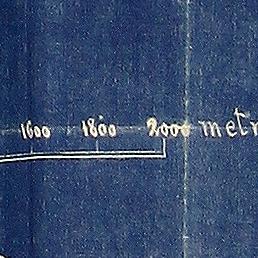 1600 1800 2000 metr